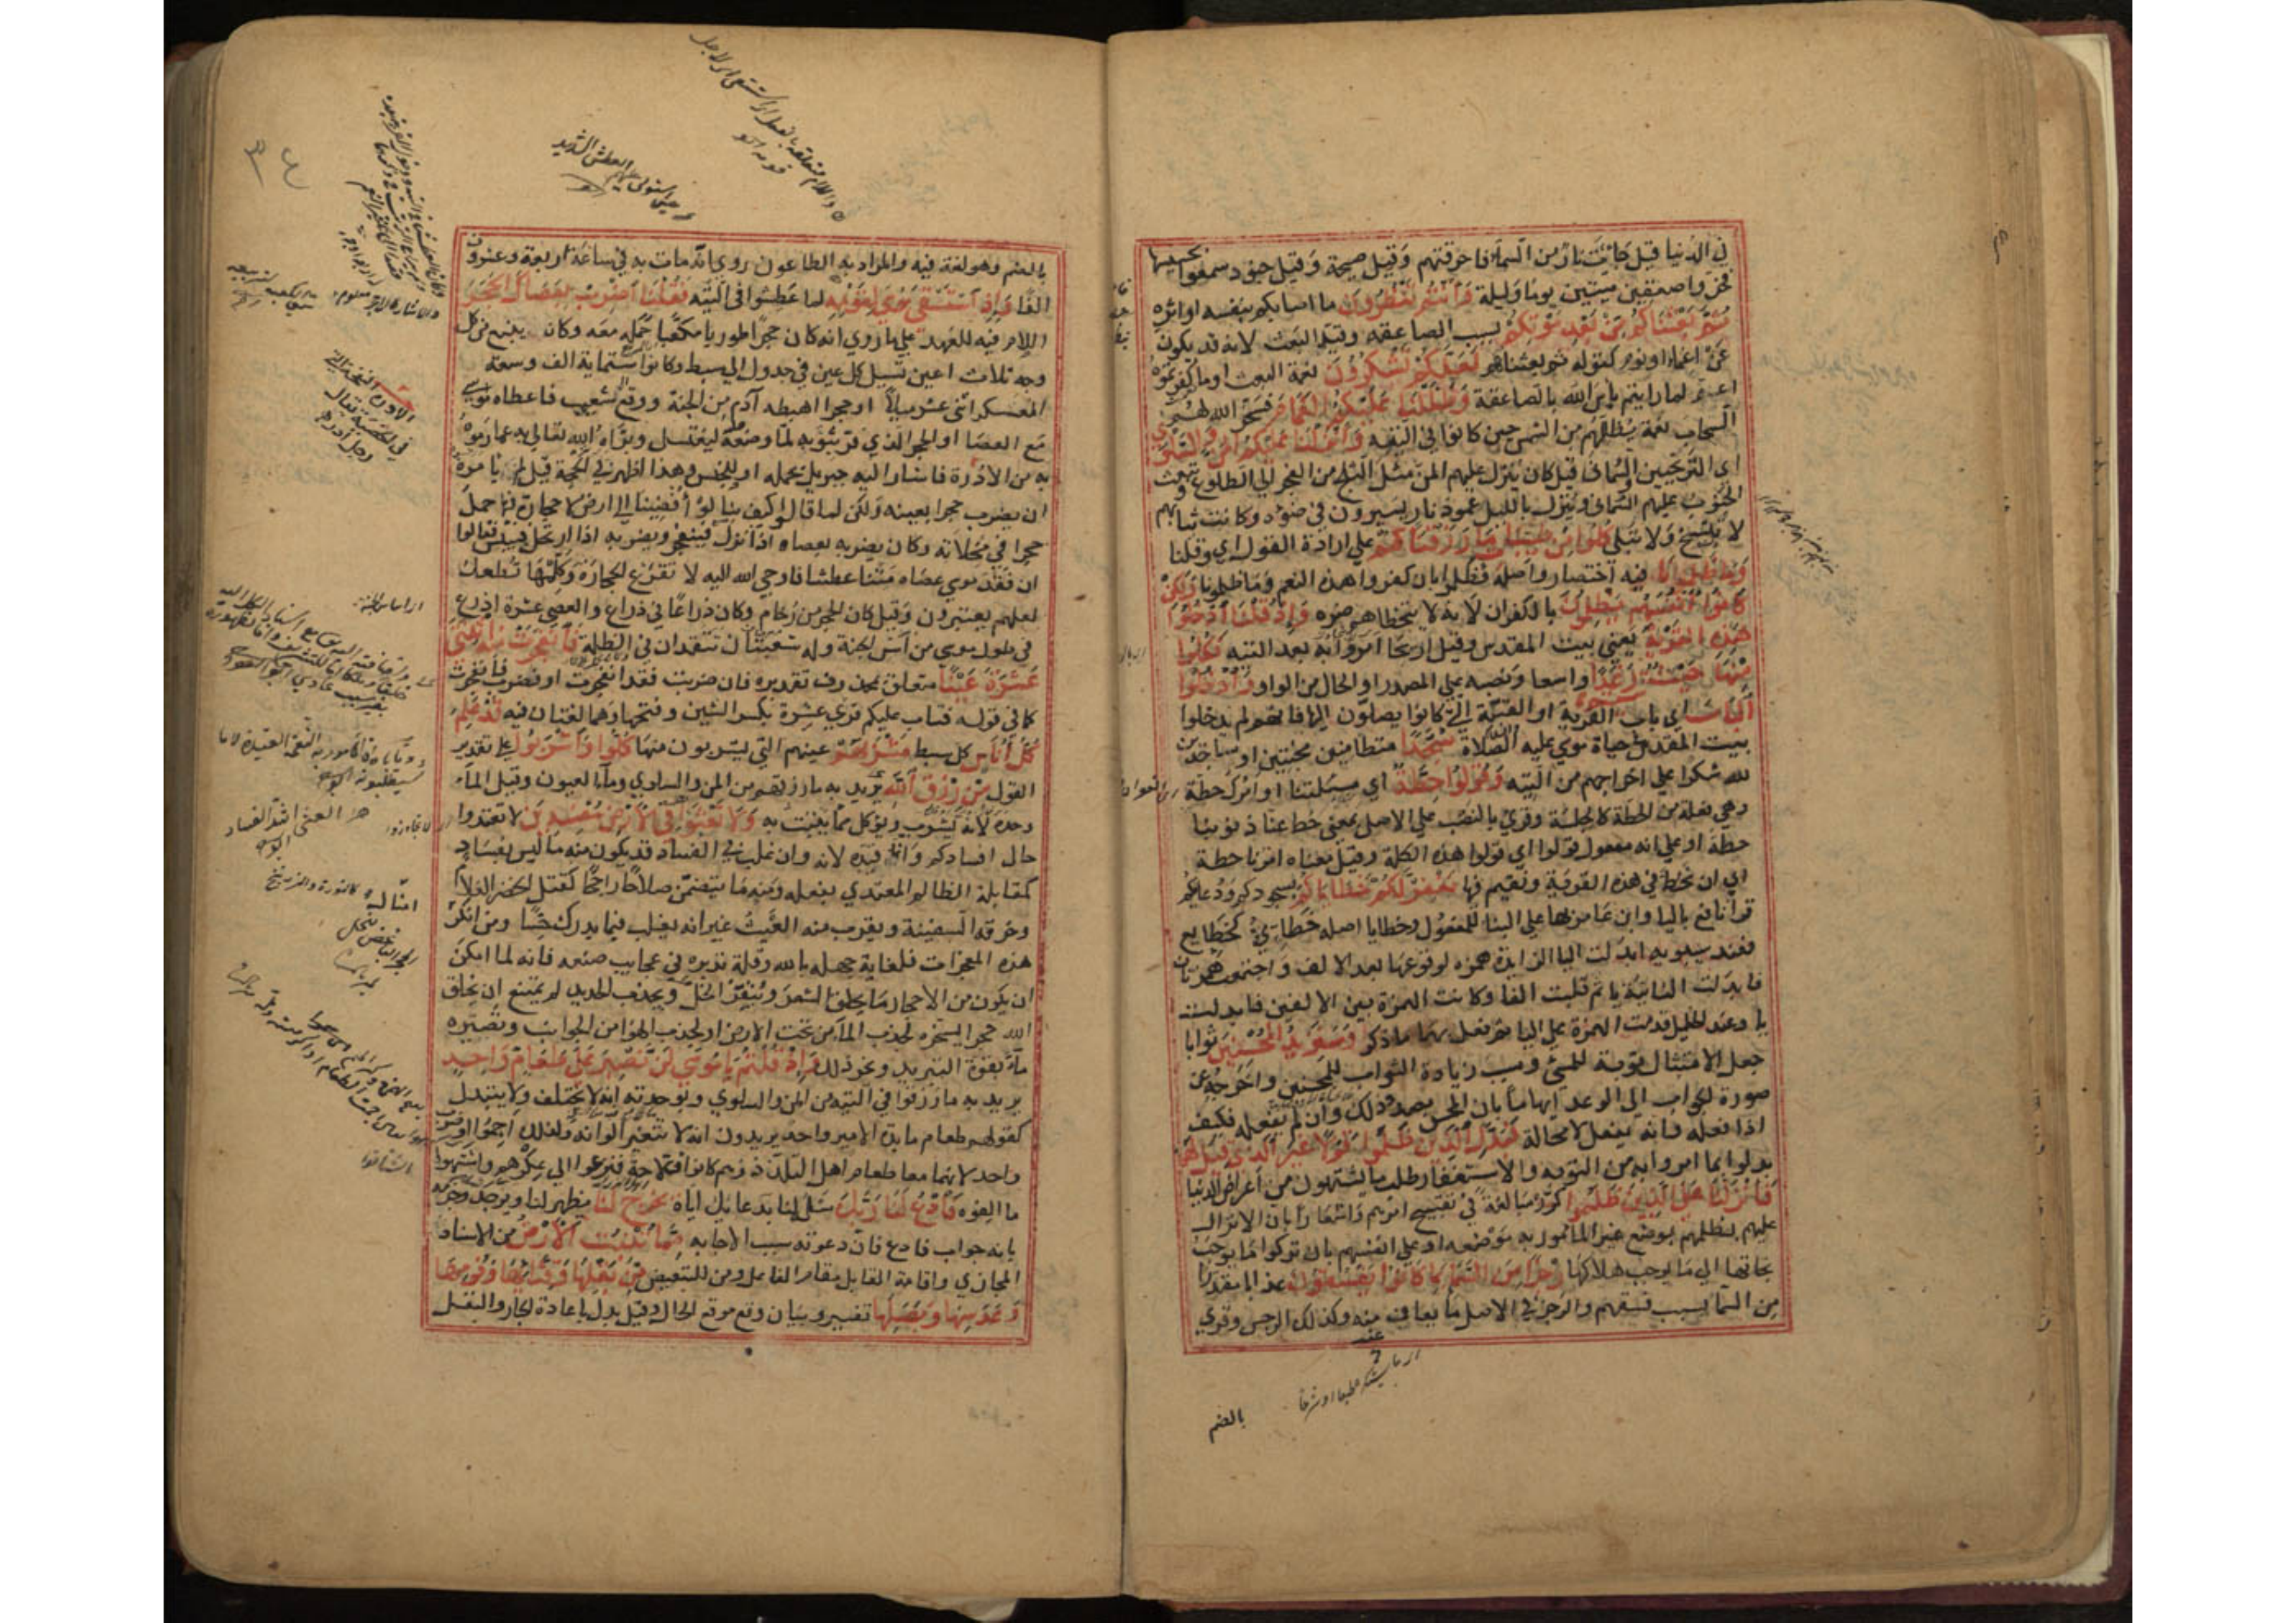 في الدنيا قيل جاءت نار من السماء فاحرقتهم وقيل صيحة وقيل جنود سمعوا بحسيسها
فخروا صعقين ميتين يوما وليلة وأنتم تنظرون ما اصابكم بنفسه او اثره
ثم بعثناكم من بعد موتكم بسبب الصاعقة وقيد البعث لانه قد يكون
عن اغماء او نوم كقوله ثم بعثناهم لعلكم تشكرون نعمة البعث او ما كفرتموه
لما رايتم باس الله بالصاعقة وظللنا عليكم الغمام سخر الله لهم
السحاب يظلهم من الشمس حين كانوا في التيه وأنزلنا عليكم المن والسلوى
اي الترنجبين السمانى قيل كان ينزل عليهم المن مثل الثلج من الفجر الي الطلوع وتبعث
الجنوب عليهم السمانى وينزل بالليل عمود نار يسيرون في ضوءه وكانت ثيابهم
لا تتسخ ولا تبلى كلوا من طيبات ما رزقناكم علي ارادة القول اي وقلنا
وما ظلمونا فيه اختصار واصله فظلموا بان كفروا هذه النعم وما ظلمونا ولكن
كانوا أنفسهم يظلمون بالكفران لانه لا يتخطاهم ضرره وإذ قلنا ادخلوا
هذه القرية يعني بيت المقدس وقيل اريحا امروا به بعد التيه فكلوا
منها حيث شئتم رغدا واسعا ونصبه علي المصدر او الحال من الواو وادخلوا
الباب اي باب القرية او القبة التي كانوا يصلون اليها فانهم لم يدخلوا
بيت المقدس في حياة موسي عليه الصلاة سجدا متطامنين مخبتين او ساجدين
لله شكرا علي اخراجهم من التيه وقولوا حطة اي مسئلتنا او امرك حطة
وهي فعلة من الحطة كالجلسة وقري بالنصب علي الاصل بمعني حط عنا ذنوبنا
حطة او علي انه مفعول قولوا اي قولوا هذه الكلمة وقيل معناه امرنا حطة
اي ان نحط في هذه القرية ونقيم فيها نغفر لكم خطاياكم بسجودكم ودعائكم
قرا نافع باليا وابن عامر بها علي البنا للمفعول وخطايا اصله خطايئ كخطايع
فعند سيبويه ابدلت اليا الزايدة همزه لوقوعها بعد الالف واجتمعت همزتان
فابدلت الثانية يا ثم قلبت الفا وكانت الهمزة بين الالفين فابدلت
يا وعند الخليل قدمت الهمزة علي اليا ثم فعل بهما ما ذكر وسنزيد المحسنين ثوابا
جعل الامتثال توبة للمسي وسبب زيادة الثواب للمحسنين واخرجه عن
صورة الجواب الي الوعد ايهاما بان المحسن بصدد ذلك وان لم يفعله فكيف
اذا فعله فانه يفعل لا محالة فبدل الذين ظلموا قولا غير الذي قيل لهم
بدلوا بما امروا به من التوبه والاستغفار طلب ما يشتهون من أعراض الدنيا
فأنزلنا على الذين ظلموا كرره مبالغة في تقبيح امرهم واشعارا بان الانزال
عليهم لظلمهم بوضع غير المامور به موضعه او علي انفسهم بان تركوا ما يوجب
نجاتها الي ما يوجب هلاكها رجزا من السماء بما كانوا يفسقون عذابا مقدرا
من السما بسبب فسقهم والرجز في الاصل ما يعاف عنه وكذلك الرجس وقري
بالضم
٣٤
بالضم وهو لغة فيه والمراد به الطاعون روي انه مات به في ساعة اربعة وعشرون
الفا وإذ استسقى موسى لقومه لما عطشوا في التيه فقلنا اضرب بعصاك الحجر
اللام فيه للعهد علي ما روي انه كان حجرا طوريا مكعبا حمله معه وكان ينبع من كل
وجه ثلاث اعين تسيل كل عين في جدول الي سبط وكانوا ستماية الف وسعة
المعسكر اثني عشر ميلا او حجرا اهبطه آدم من الجنة ووقع الي شعيب فاعطاه موسي
مع العصا او الحجر الذي فر بثوبه لما وضعه عليه ليغتسل وبراه الله تعالي به عما رموه
به من الادرة فاشار اليه جبريل بحمله او للجنس وهذا اظهر في الحجة قيل لم يامره
ان يضرب حجرا بعينه ولكن لما قالوا كيف بنا لو أفضينا الي ارض لا حجارة بها حمل
حجرا في مخلاته وكان يضربه بعصاه اذا نزل فينفجر ويضربه اذا ارتحل فييبس فقالوا
ان فقد موسي عصاه متنا عطشا فاوحي الله اليه لا تقرع الحجارة وكلمها تطعك
لعلهم يعتبرون وقيل كان الحجر من رخام وكان ذراعا في ذراع والعصي عشرة اذرع
في طول موسي من آس الجنة وله شعبتان تتقدان في الظلمة فانفجرت منه اثنتا
عشرة عينا متعلق بمحذوف تقديره فان ضربت فقد انفجرت او فضرب فانفجرت
كما في قوله فتاب عليكم وقري عشرة بكسر الشين وفتحها وهما لغتان فيه قد علم
كل أناس كل سبط مشربهم عينهم التي يشربون منها كلوا واشربوا علي تقدير
القول من رزق الله يريد به ما رزقهم من المن والسلوي وما العيون وقيل الماء
وحده لانه يشرب ويوكل مما ينبت به ولا تعثوا في الأرض مفسدين لا تعتدوا
حال افسادكم وانما قيده لانه وان غلب في الفساد قد يكون منه ما ليس بفساد
كمقابلة الظالم المعتدي بفعله ومنه ما يتضمن صلاحا راجحا كقتل الخضر الغلام
وخرقه السفينة ويقرب منه العيث غير انه يغلب فيما يدرك حسا ومن انكر
هذه المعجزات فلغاية جهله بالله وقلة تدبره في عجايب صنعه فانه لما امكن
ان يكون من الاحجار ما يحلق الشعر وينفر الخل ويجذب الحديد لم يمتنع ان يخلق
الله حجرا يسخره لجذب الما من تحت الارض او لجذب الهوا من الجوانب وتصييره
ماء بقوة التبريد ونحو ذلك وإذ قلتم يا موسى لن نصبر على طعام واحد
يريد به ما رزقوا في التيه من المن والسلوي وبوحدته انه لا يختلف ولا يتبدل
كقولهم طعام مايدة الامير واحد يريدون انه لا تتغير الوانه ولذلك اجموا او ضرب
واحد لانهما معا طعام اهل التلذذ وهم كانوا فلاحة فنزعوا الي عكرهم واشتهوا
ما الفوه فادع لنا ربك سله لنا بدعايك اياه يخرج لنا يظهر لنا ويوجد وجزمه
بانه جواب فادع فان دعوته سبب الاجابه مما تنبت الأرض من الاسناد
المجازي واقامة القابل مقام الفاعل ومن للتبعيض من بقلها وقثائها وفومها
وعدسها وبصلها تفسير وبيان وقع موقع الحال وقيل بدل باعادة الجار والبقل